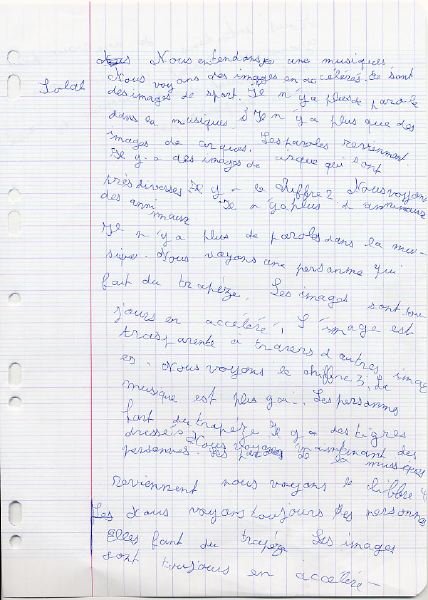 Nous entendons une musiques
Nous voyons des images en accéléré. Ce sont
Solal
des images de sport. Il n'y a plus de parole
dans la musiques Il n'y a plus que des
images de cirques. Les paroles reviennent
Il y a des images de cirque qui sont
très diverses Il y a le chiffre 2 Nous voyons
des ani maux Il n'y a plus d'animaux
Il n'y a plus de paroles dans la mu-
sique. Nous voyons une personne qui
fait du trapèze. Les images sont tou
jours en accéléré, L'image est
trasparente a travers d'autres imag
es. Nous voyons le chiffre 3, La
musique est plus gai. Les personnes
font du trapèze Il y a des tigres
dressés Nous voyons maintenant des
personnes. Les paroles de la musiques
reviennent nous voyons le chiffre 4
Nous voyons toujours les personnes
Elles font du trapèze Les images
sont toujours en accéléré-